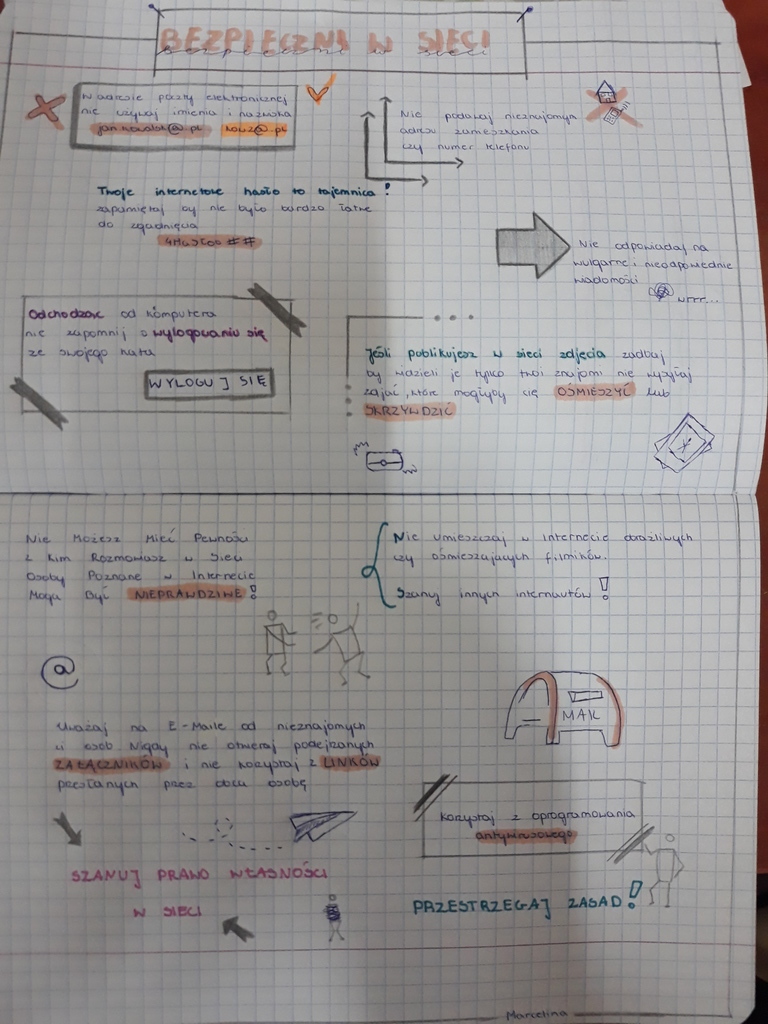 BEZPIECZNI W SIECI
W adresie poczty elektronicznej
nie używaj imienia i nazwiska
jan.kowalski@.pl kowz@.pl
Nie podawaj nieznajomym
adresu zamieszkania
czy numer telefonu
Twoje internetowe hasło to tajemnica!
zapamiętaj by nie było bardzo łatwe
do zgadnięcia
##
Nie odpowiadaj na
wulgarne i nieodpowiednie
wiadomości
wrrr...
Odchodząc od komputera
nie zapomnij o wylogowaniu się
ze swojego
WYLOGUJ SIĘ
Jeśli publikujesz w sieci zdjęcia zadbaj
by widzieli je tylko twoi znajomi nie wysyłaj
zdjęć, które mogłyby cię OŚMIESZYĆ lub
SKRZYWDZIĆ
Nie Możesz Mieć Pewności
z Kim Rozmawiasz w Sieci
Osoby Poznane w Internecie
Mogą Być NIEPRAWDZIWE!
Nie umieszczaj w internecie obraźliwych
czy ośmieszających filmików.
Szanuj innych internautów!
@
MAIL
Uważaj na E-Maile od nieznajomych
ci osób Nigdy nie otwieraj podejrzanych
ZAŁĄCZNIKÓW i nie korzystaj z LINKÓW
przesłanych przez obcą osobę
Korzystaj z oprogramowania
antywirusowego
SZANUJ PRAWO WŁASNOŚCI
W SIECI
PRZESTRZEGAJ ZASAD!
Marcelina